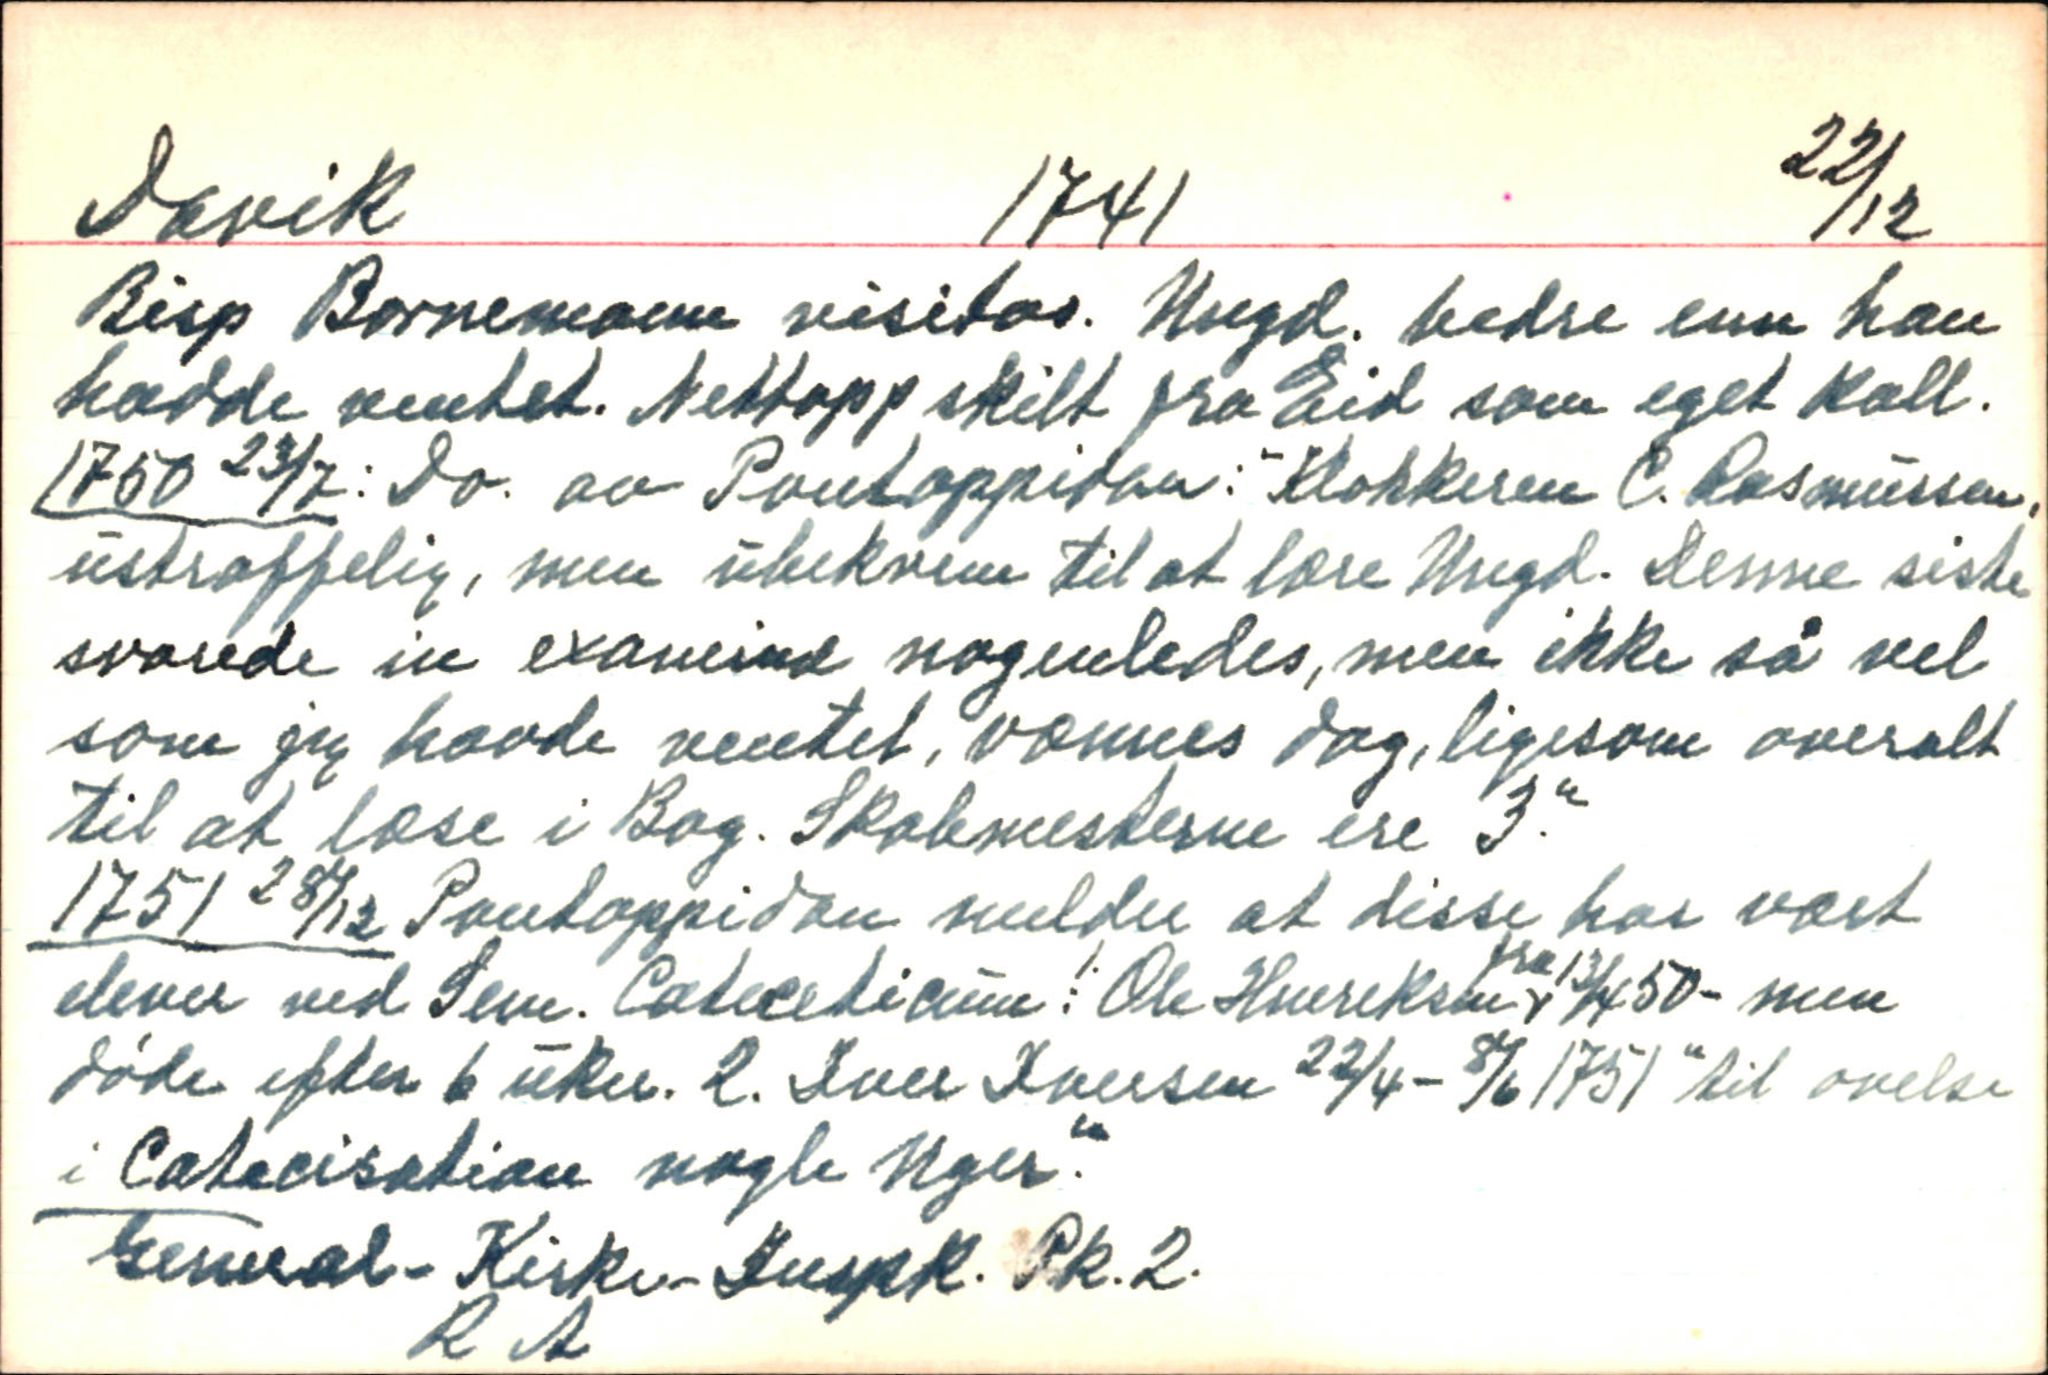 Davik 1741 22/12
Bisp Bornemann visitas. Ungd. bedre enn han
hadde ventet. Nettopp skilt fra Eid som eget kall.
1750 23/7: Do. av Pontoppidan: "Klokkeren C. Rasmussen,
ustraffelig, men ubekvem til at lære Ungd. Denne siste
svarede in examine nogenledes, men ikke så vel
som jeg havde ventet, vænnes dog, ligesom overalt
til at læse i Bog. Skolemesterne ere 3."
1751 28/12 Pontoppidan melder at disse har vært
elever ved Sem. Catecheticum: 1. Ole Henriksen fra 13/4 50 - men
døde efter 6 uker. 2. Iver Iversen 22/4 - 8/6 1751 "til øvelse
i Catecisation nogle Uger."
General-Kirke-Inspk. Pk. 2.
R A